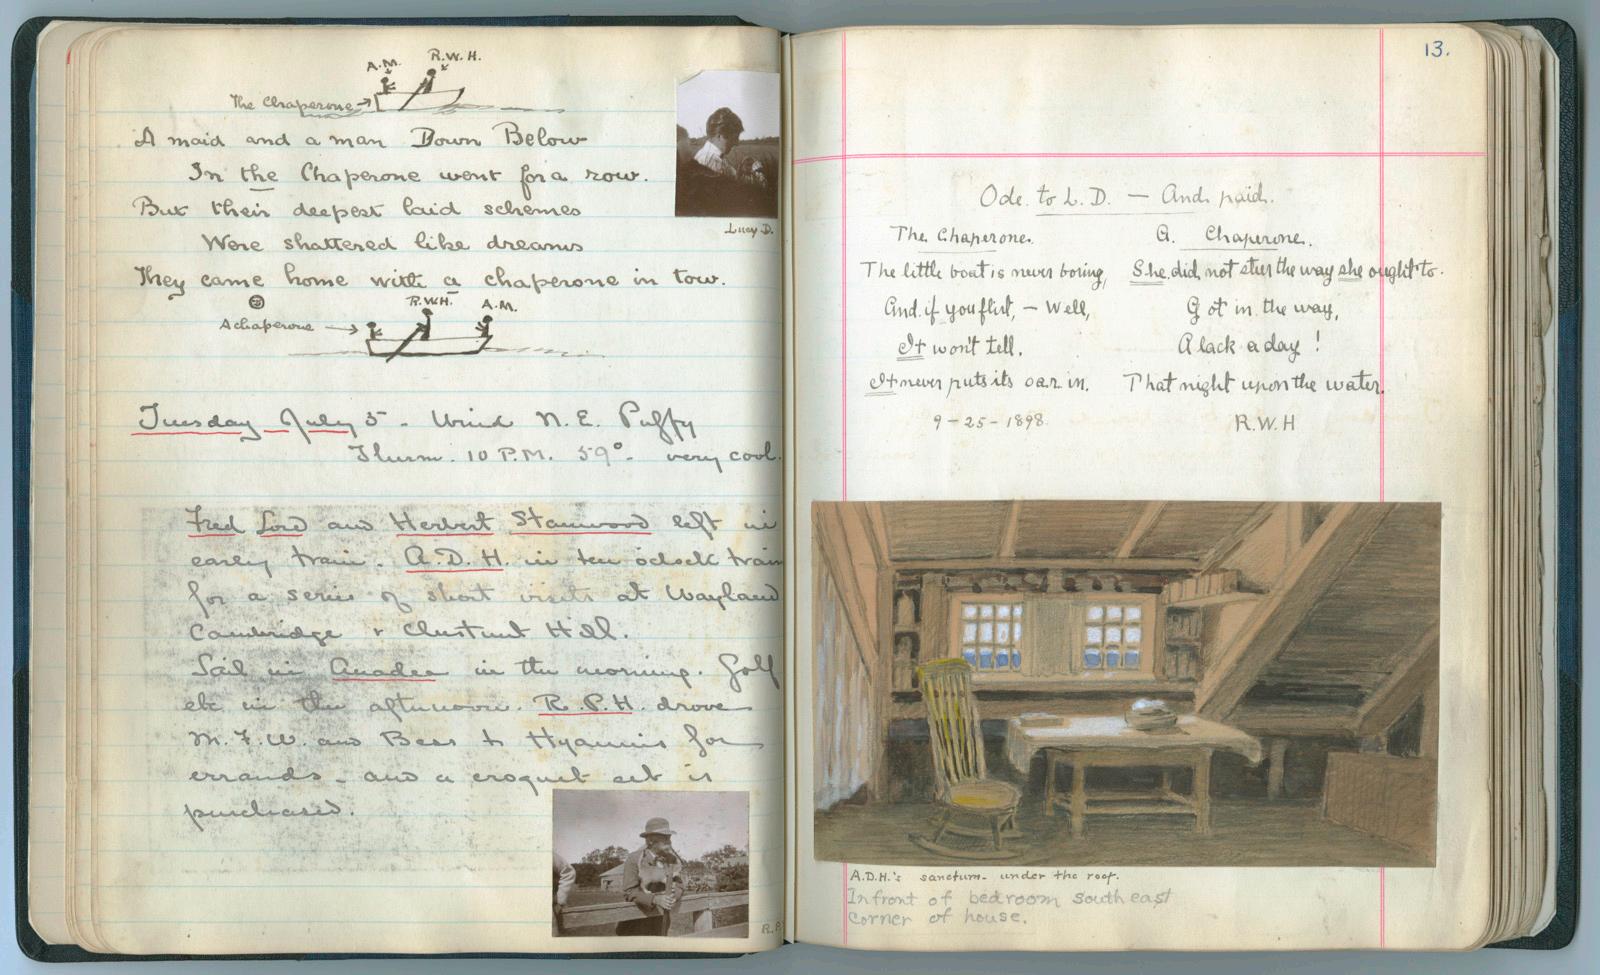 A.M. R.W.H.
The Chaperone →
A maid and a man Down Below
In the Chaperone went for a row.
But their deepest laid schemes
Were shattered like dreams
They came home with a chaperone in tow.
R.W.H. A.M.
A chaperone →
Lucy D.
Tuesday July 5 - Wind N.E. Puffy
Therm. 10 P.M. 59° - very cool.
Fred Lord and Herbert Stanwood left in
early train. A.D.H. in ten o'clock train
for a series of short visits at Wayland
Cambridge + Chestnut Hill.
Sail in in the morning. Golf
etc in the afternoon. R.P.H. drove
M.F.W. and Bess to Hyannis for
errands - and a croquet set is
purchased.
13.
Ode to L.D. — And. paid.
The Chaperone.
The little boat is never boring,
And if you flirt, — Well,
It won't tell.
It never puts its oar in.
9-25-1898.
A. Chaperone.
She did not stir the way she ought to.
Got in the way,
Alack a day!
That night upon the water.
R.W.H
A.D.H.'s sanctum - under the roof.
In front of bedroom south east
corner of house.